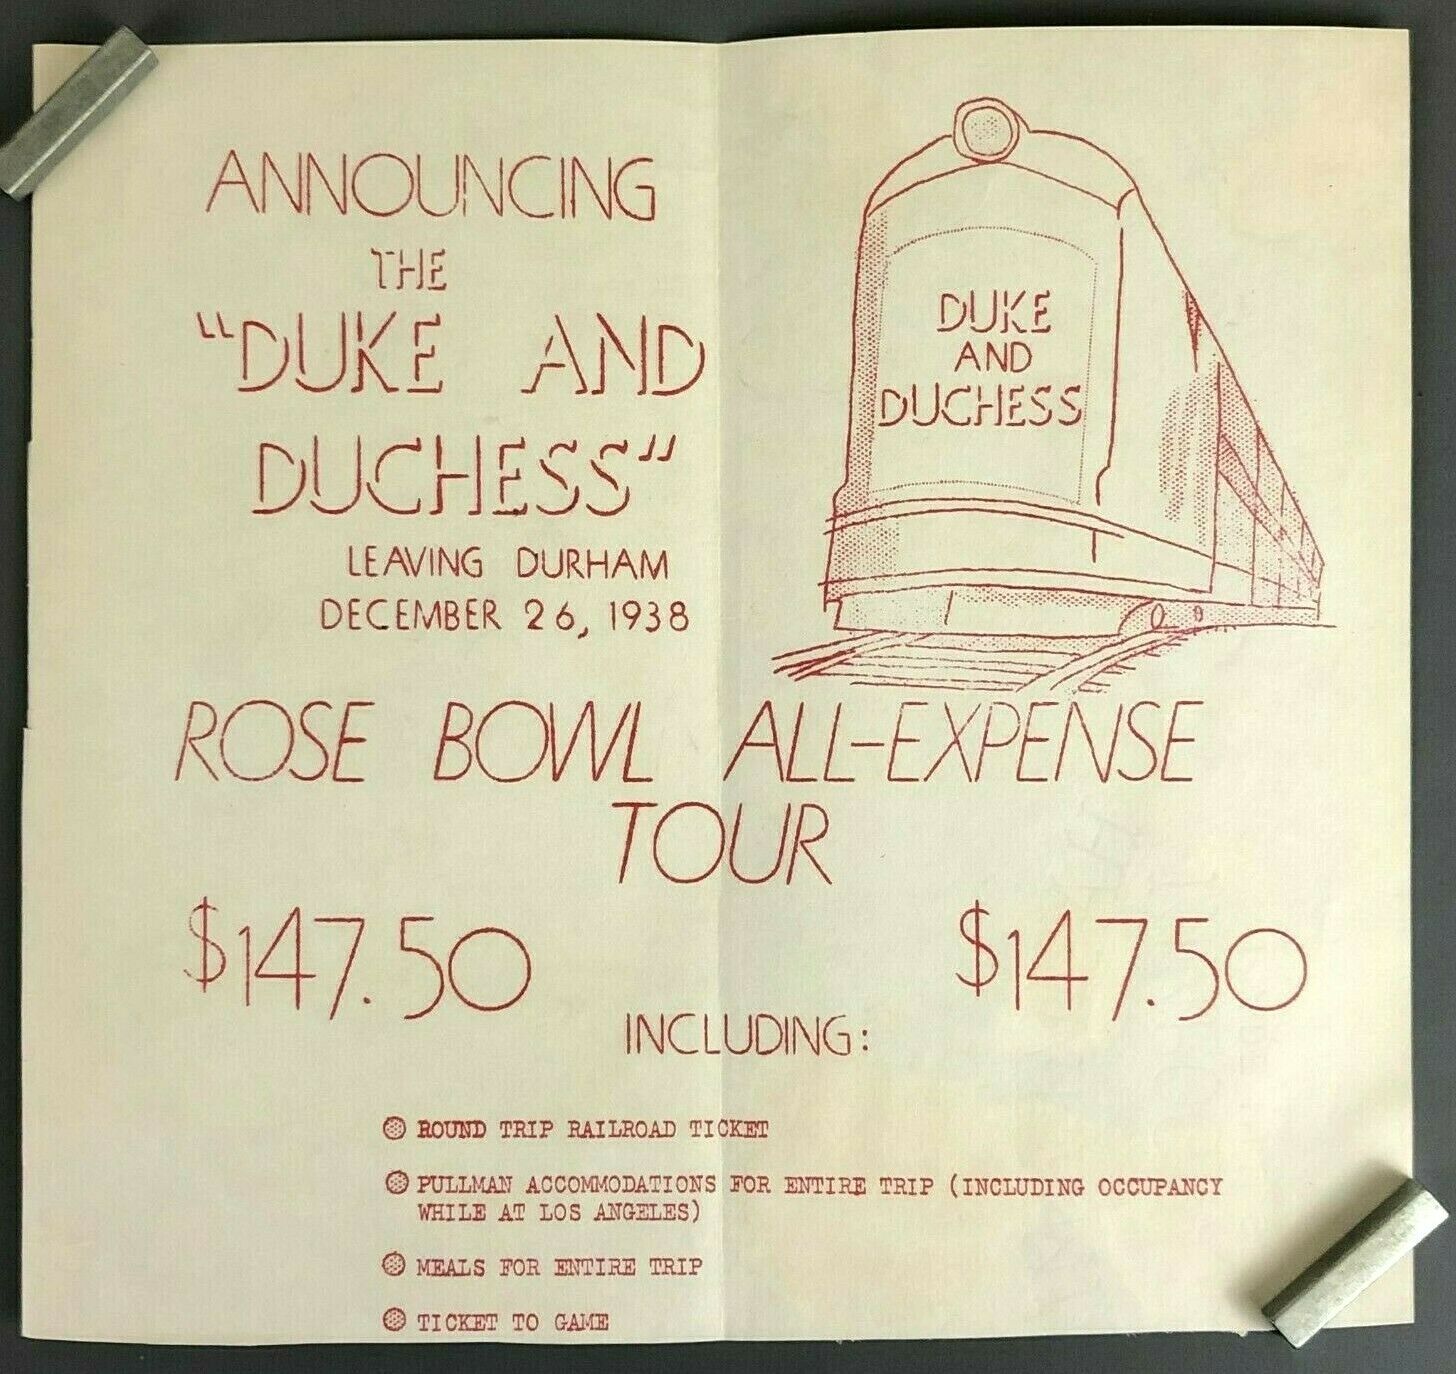 ANNOUNCING
THE
"DUKE AND
DUCHESS"
LEAVING DURHAM
DECEMBER 26, 1938
DUKE
AND
DUCHESS
ROSE BOWL ALL-EXPENSE
TOUR
$147.50 $147.50
INCLUDING:
ROUND TRIP RAILROAD TICKET
PULLMAN ACCOMMODATIONS FOR ENTIRE TRIP (INCLUDING OCCUPANCY
WHILE AT LOS ANGELES)
MEALS FOR ENTIRE TRIP
TICKET TO GAME